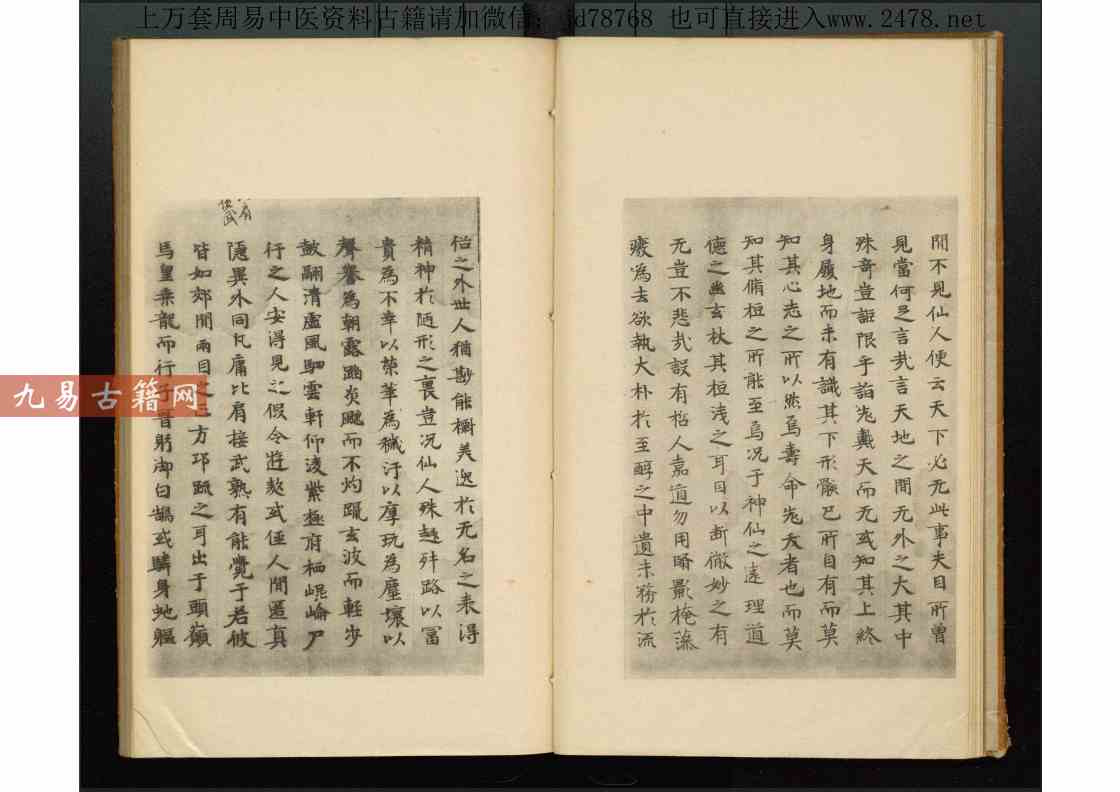 上万套周易中医资料古籍请加微信：jd78768 也可直接进入www.2478.net
聞不見仙人便云天下必无此事夫目所曾
見當何足言哉言天地之間无外之大其中
殊奇豈詎限乎詣老戴天而无或知其上終
身履地而未有識其下形骸已所自有而莫
知其心志之所以然焉壽命老友者也而莫
知其脩桓之所能至焉況于神仙之遠理道
德之幽玄杖其桓浅之耳目以斷微妙之有
无豈不悲哉設有栝人嘉遁勿用曀影掩藻
癈爲去欲執大朴扵至醇之中遺末務扵流
俗之外世人猶尠能摽美逸扵无名之表得
精神扵陋形之裏豈況仙人殊趍舛路以冨
貴爲不幸以榮華爲穢汙以厚玩爲塵壤以
聲譽爲朝露蹈炎飈而不灼躡玄波而輕步
皷翮清虛風駟雲軒仰淩紫極府栖崐崘尸
行之人安得見之假令遊敖或俓人間匿真
隱異外同凡庸比肩接武熟有能覺于若彼
皆如郊間兩目之三方邛疏之耳出于頭巔
馬皇乘龍而行子晋躬御白鵠或驎身虵軀
九易古籍网